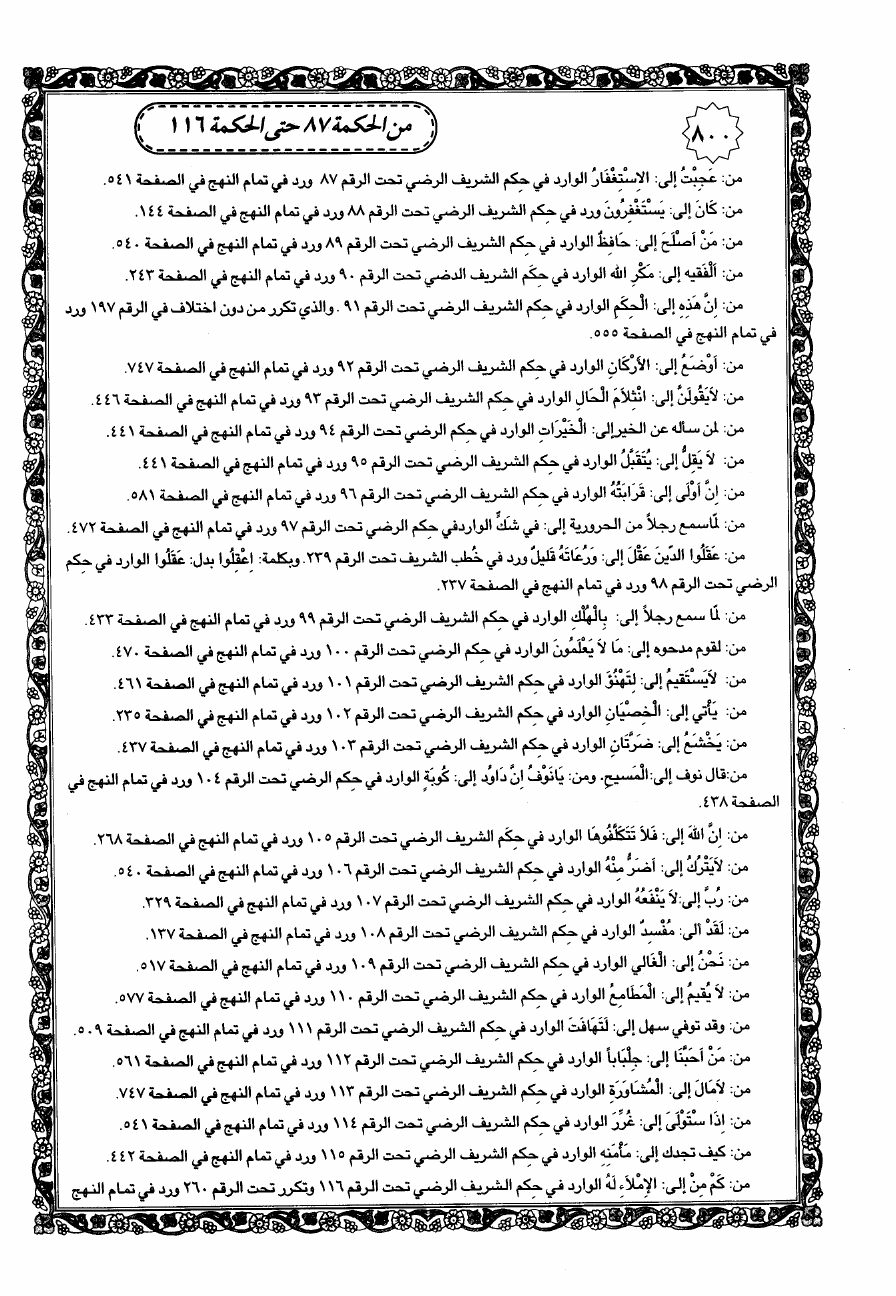 ٨٠٠
من الحكمة ٨٧ حتى الحكمة ١١٦
من: عَجِبْتُ إلى: الاِسْتِغْفَارُ الوارد في حِكم الشريف الرضي تحت الرقم ٨٧ ورد في تمام النهج في الصفحة ٥٤١.
من: كَانَ إلى: يَسْتَغْفِرُونَ ورد في حكم الشريف الرضي تحت الرقم ٨٨ ورد في تمام النهج في الصفحة ١٤٤.
من: مَنْ أَصْلَحَ إلى: حَافِظٌ الوارد في حِكم الشريف الرضي تحت الرقم ٨٩ ورد في تمام النهج في الصفحة ٥٤٠.
من: اَلْفَقيه إلى: مَكْرِ الله الوارد في حِكَم الشريف الدضي تحت الرقم ٩٠ ورد في تمام النهج في الصفحة ٢٤٣.
من: إِنَّ هَذِهِ إلى: الْحِكَمِ الوارد في حِكم الشريف الرضي تحت الرقم ٩١ . والذي تكرر من دون اختلاف في الرقم ١٩٧ ورد
في تمام النهج في الصفحة ٥٥٥.
من: أَوْضَعُ إلى: الأَرْكَانِ الوارد في حِكم الشريف الرضي تحت الرقم ٩٢ ورد في تمام النهج في الصفحة ٧٤٧.
من: لاَيَقُولَنَّ إلى: انْثِلاَمَ الْحَالِ الوارد في حِكم الشريف الرضي تحت الرقم ٩٣ ورد في تمام النهج في الصفحة ٤٤٦.
من: لمن سأله عن الخير إلى: الْخَيْرَاتِ الوارد في حِكم الرضي تحت الرقم ٩٤ ورد في تمام النهج في الصفحة ٤٤١.
من: لاَ يَقِلُّ إلى: يُتَقَبَّلُ الوارد في حِكم الشريف الرضي تحت الرقم ٩٥ ورد في تمام النهج في الصفحة ٤٤١.
من: إِنَّ أَوْلَى إلى: قَرَابَتُهُ الوارد في حكم الشريف الرضي تحت الرقم ٩٦ ورد في تمام النهج في الصفحة ٥٨١.
من: لماسمع رجلاً من الحرورية إلى: في شَكٍّ الواردفي حِكم الرضي تحت الرقم ٩٧ ورد في تمام النهج في الصفحة ٤٧٢.
من: عَقَلُوا الدّينَ عَقْلَ إلى: وَرُعَاتَهُ قَليلٌ ورد في خُطب الشريف تحت الرقم ٢٣٩. وبكلمة: اِعْقِلُوا بدل: عَقَلُوا الوارد في حِكم
الرضي تحت الرقم ٩٨ ورد في تمام النهج في الصفحة ٢٣٧.
من: لمّا سمع رجلاً إلى: بِالْهُلْكِ الوارد في حكم الشريف الرضي تحت الرقم ٩٩ ورد في تمام النهج في الصفحة ٤٣٣.
من: لقوم مدحوه إلى: مَا لاَ يَعْلَمُونَ الوارد في حِكم الرضي تحت الرقم ١٠٠ ورد في تمام النهج في الصفحة ٤٧٠.
من: لاَيَسْتَقيمُ إلى: لِتَهْنُؤَ الوارد في حِكم الشريف الرضي تحت الرقم ١٠١ ورد في تمام النهج في الصفحة ٤٦١.
من: يَأْتي إلى: الْخِصْيَانِ الوارد في حِكم الشريف الرضي تحت الرقم ١٠٢ ورد في تمام النهج في الصفحة ٢٣٥.
من: يَخْشَعُ إلى: ضَرَّتَانِ الوارد في حكم الشريف الرضي تحت الرقم ١٠٣ ورد في تمام النهج في الصفحة ٤٣٧.
من:قال نوف إلى:الْمَسيحِ. ومن: يَانَوْفُ إِنَّ دَاوُدَ إلى: كُوبَةٍ الوارد في حكم الرضي تحت الرقم ١٠٤ ورد في تمام النهج في
الصفحة ٤٣٨.
من: إِنَّ اللهَ إلى: فَلاَ تَتَكَلَّفُوهَا الوارد في حِكَم الشريف الرضي تحت الرقم ١٠٥ ورد في تمام النهج في الصفحة ٢٦٨.
من: لاَيَتْرُكُ إلى: أَضَرُّ مِنْهُ الوارد في حِكم الشريف الرضي تحت الرقم ١٠٦ ورد في تمام النهج في الصفحة ٥٤٠.
من: رُبَّ إلى:لاَ يَنْفَعُهُ الوارد في حِكم الشريف الرضي تحت الرقم ١٠٧ ورد في تمام النهج في الصفحة ٣٢٩.
من: لَقَدْ الى: مُفْسِدٌ الوارد في حكم الشريف الرضي تحت الرقم ١٠٨ ورد في تمام النهج في الصفحة ١٣٧.
من: نَحْنُ إلى: الْغَالي الوارد في حِكم الشريف الرضي تحت الرقم ١٠٩ ورد في تمام النهج في الصفحة ٥١٧.
من: لاَ يُقيمُ إلى: الْمَطَامِعُ الوارد في حِكم الشريف الرضي تحت الرقم ١١٠ ورد في تمام النهج في الصفحة ٥٧٧.
من: وقد توفي سهل إلى: لَتَهَافَتَ الوارد في حِكم الشريف الرضي تحت الرقم ١١١ ورد في تمام النهج في الصفحة ٥٠٩.
من: مَنْ أَحَبَّنَا إلى: جِلْبَاباً الوارد في حكم الشريف الرضي تحت الرقم ١١٢ ورد في تمام النهج في الصفحة ٥٦١.
من: لاَمَالَ إلى: الْمُشَاوَرَةِ الوارد في حِكم الشريف الرضي تحت الرقم ١١٣ ورد في تمام النهج في الصفحة ٧٤٧.
من: إِذَا سْتَوْلَىَ إلى: غُرِّرَ الوارد في حكم الشريف الرضي تحت الرقم ١١٤ ورد في تمام النهج في الصفحة ٥٤١.
من: كيف تجدك إلى: مَأْمَنِهِ الوارد في حِكم الشريف الرضي تحت الرقم ١١٥ ورد في تمام النهج في الصفحة ٤٤٢.
من: كَمْ مِنْ إلى: الإِمْلاَءِ لَهُ الوارد في حكم الشريف الرضي تحت الرقم ١١٦ وتكرر تحت الرقم ٢٦٠ ورد في تمام النهج